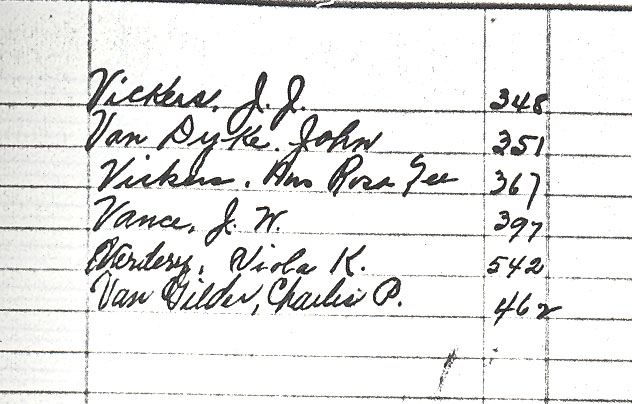 Vickers, J. J. 348
Van Dyke, John 351
Vickers, Mrs Rosa Lee 367
Vance, J. W. 397
Verdery, Viola K. 542
Van Gilder, Charles P. 462